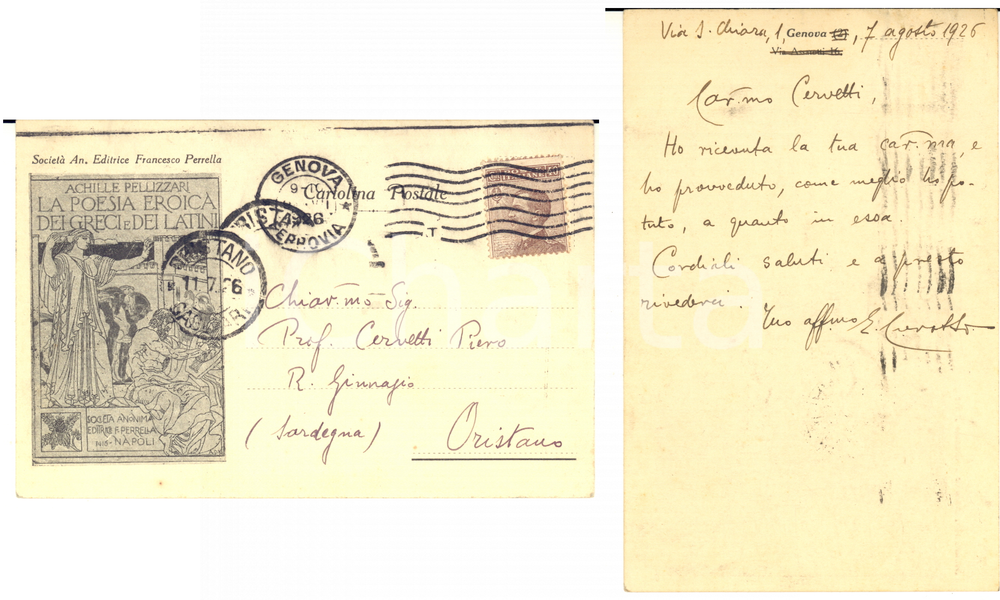 Società An. Editrice Francesco Perrella
ACHILLE PELLIZZARI
LA POESIA EROICA
DEI GRECI E DEI LATINI
SOCIETÀ ANONIMA
EDITRICE F. PERRELLA
NAPOLI
GENOVA
FERROVIA
Cartolina Postale
ORISTANO
11.7.26
Chiar.mo Sig.
Prof. Cervetti Piero
R. Ginnasio
(Sardegna) Oristano
Via S. Chiara, 1, Genova (2), 7 agosto 1926
Car.mo Cervetti,
Ho ricevuta la tua car.ma, e
ho provveduto, come meglio ho po-
tuto, a quanto in essa.
Cordiali saluti e a presto
rivederci. Tuo affmo E.
Charta